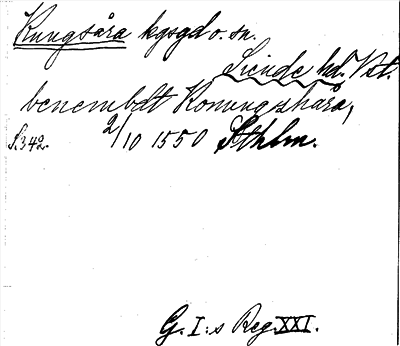 Kungsåra kgsgd o. sn.
Siende hd. Vstl.
benembdt Konungshårå,
S.342. 2/10 1550 Sthlm.
G. I:s Reg. XXI.